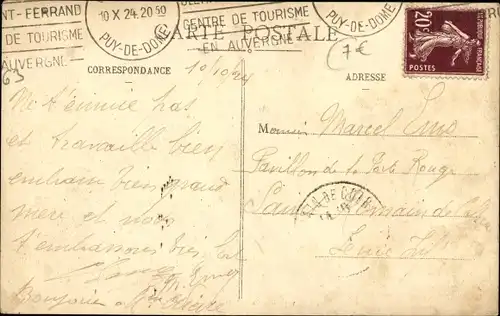 NT-FERRAND
DE TOURISME
AUVERGNE
10 X 24. 20 50
PUY-DE-DOME
CENTRE DE TOURISME
EN AUVERGNE
PUY-DE-DOME
20c
POSTES
CARTE POSTALE
7€
63
CORRESPONDANCE
ADRESSE
10/10/24
Ne t'ennuie pas
et travaille bien
embrasse bien grand
mère et nous
t'embrassons bien fort
Bonjour à
Monsieur Marcel
Pavillon de la Porte Rouge
Saint Romain de
Seine Inf